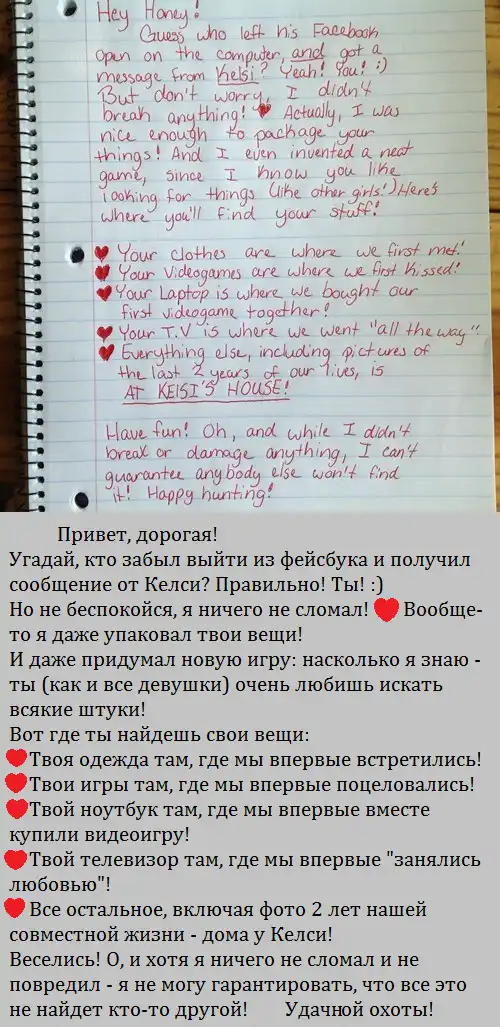 Hey Honey!
Guess who left his Facebook
open on the computer, and got a
message from Kelsi? Yeah! You! :)
But don't worry, I didn't
break anything! ❤ Actually, I was
nice enough to package your
things! And I even invented a neat
game, since I know you like
looking for things (like other girls!) Here's
where you'll find your stuff!
❤ Your clothes are where we first met!
❤ Your Videogames are where we first kissed!
❤ Your Laptop is where we bought our
first videogame together!
❤ Your T.V is where we went "all the way"
❤ Everything else, including pictures of
the last 2 years of our lives, is
AT KElSI'S HOUSE!
Have fun! Oh, and while I didn't
break or damage anything, I can't
guarantee anybody else won't find
it! Happy hunting!
Привет, дорогая!
Угадай, кто забыл выйти из фейсбука и получил
сообщение от Келси? Правильно! Ты! :)
Но не беспокойся, я ничего не сломал! ❤ Вообще-
то я даже упаковал твои вещи!
И даже придумал новую игру: насколько я знаю -
ты (как и все девушки) очень любишь искать
всякие штуки!
Вот где ты найдешь свои вещи:
❤ Твоя одежда там, где мы впервые встретились!
❤ Твои игры там, где мы впервые поцеловались!
❤ Твой ноутбук там, где мы впервые вместе
купили видеоигру!
❤ Твой телевизор там, где мы впервые "занялись
любовью"!
❤ Все остальное, включая фото 2 лет нашей
совместной жизни - дома у Келси!
Веселись! О, и хотя я ничего не сломал и не
повредил - я не могу гарантировать, что все это
не найдет кто-то другой! Удачной охоты!